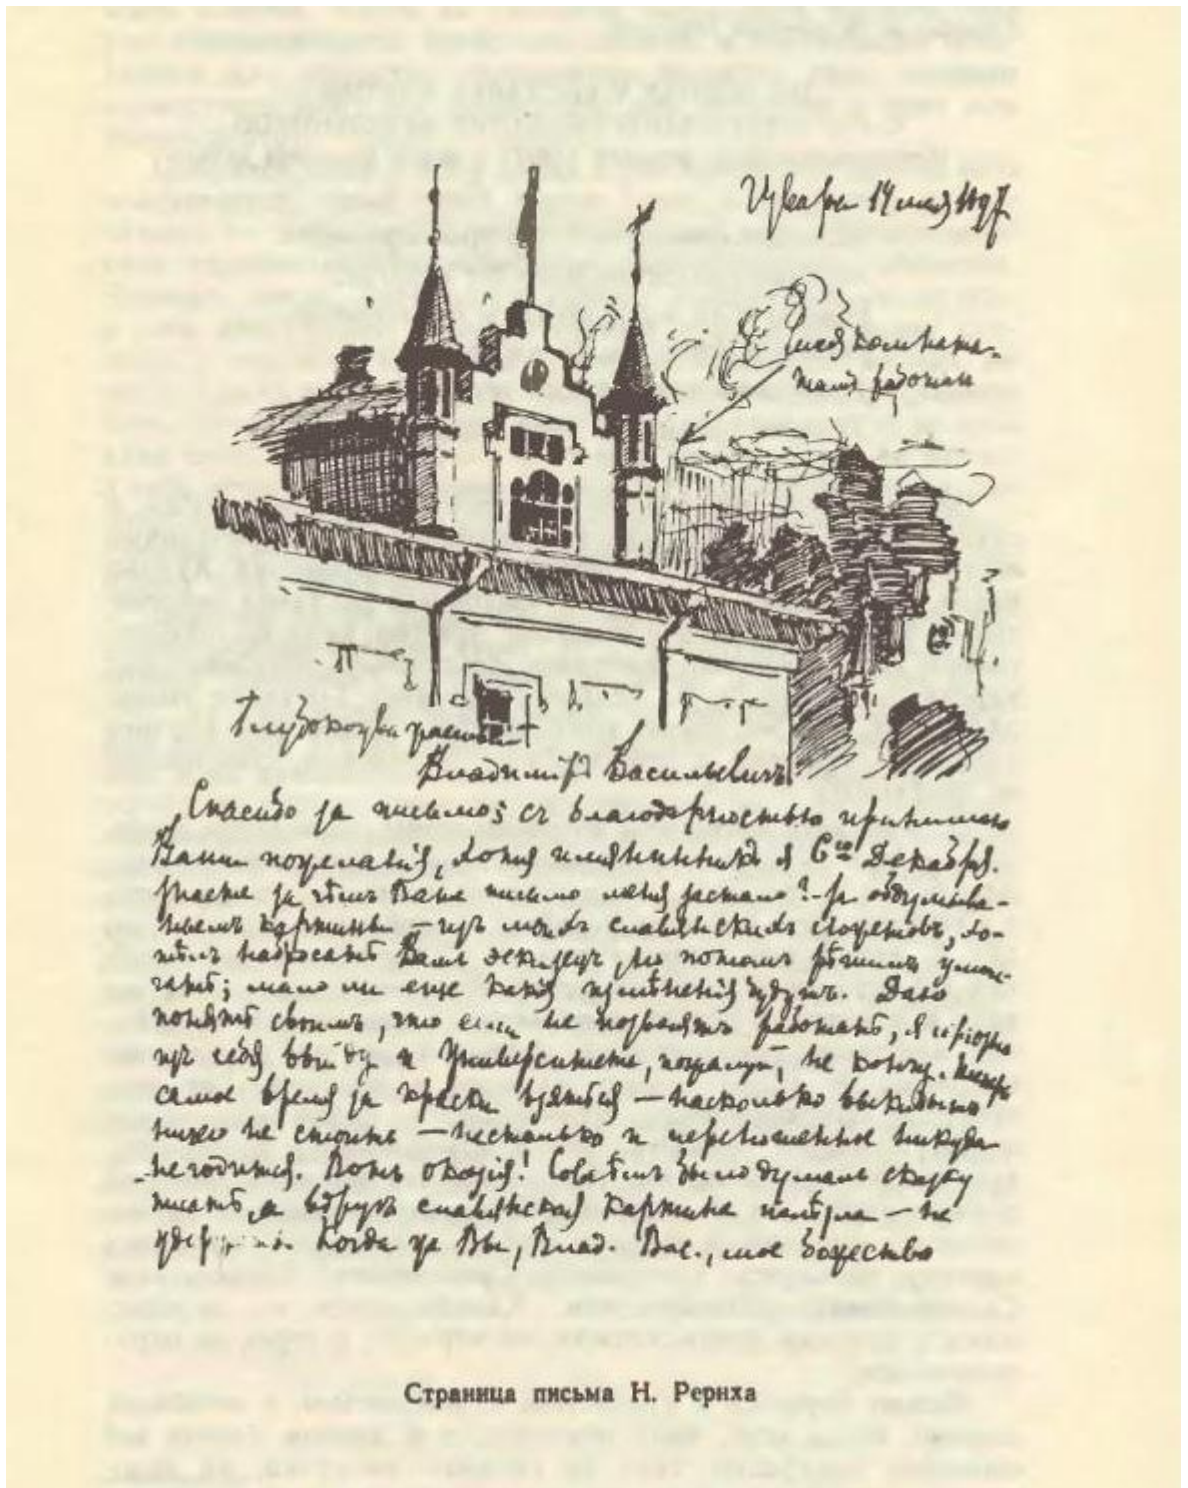 Извара 14 мая 1897
моя комната.
тамъ работаю
Глубокоуважаемый
Владиміръ Васильевичъ
Спасибо за письмо; съ благодарностью принимаю
Ваши пожеланія, хотя имянинникъ я 6го Декабря.
Знаете за чѣмъ Ваше письмо меня застало? - За обдумыва-
ніемъ картины – изъ моихъ славянскихъ сюжетовъ, хо-
тѣлъ набросать Вамъ эскизецъ, но потомъ рѣшилъ умол-
чать; мало ли еще какія измѣненія будутъ. Даю
понять своимъ, что если не позволятъ работать, я
изъ себя выйду и Университета, пожалуй, не кончу. Теперь
самое время за краски взяться – насколько
ничего не стоитъ – настолько и никуда
не годится. Вотъ оказія! Совсѣмъ было думалъ сказку
писать, а вдругъ славянская картина налѣзла – не
Когда же Вы, Влад. Вас., мое божество
Страница письма Н. Рериха